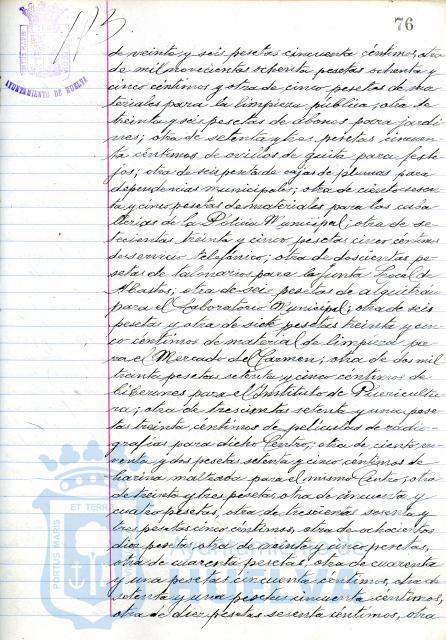 76
AYUNTAMIENTO DE HUELVA
de veinte y seis pesetas cincuenta céntimos, otra
de mil novecientas ochenta pesetas ochenta y
cinco céntimos y otra de cinco pesetas de ma-
teriales para la limpieza pública; otra de
treinta y seis pesetas de abonos para jardi-
nes; otra de setenta y tres pesetas cincuen-
ta céntimos de ovillos de guita para feste-
jos; otra de seis pesetas de cajas de plumas para
dependencias municipales; otra de ciento sesen-
ta y cinco pesetas de materiales para las caba-
llerias de la Policia Municipal; otra de se-
tecientas treinta y cinco pesetas cinco céntimos
de servicio telefónico; otra de doscientas pe-
setas de talonarios para la Junta Local de
Abastos; otra de seis pesetas de alquitrán
para el Laboratorio Municipal; otra de seis
pesetas y otra de siete pesetas treinta y cin-
co céntimos de material de limpieza pa-
ra el Mercado del Carmen; otra de dos mil
treinta pesetas setenta y cinco céntimos de
biberones para el Instituto de Puericultu-
ra; otra de trescientas setenta y una pese-
tas treinta céntimos de peliculas de radio-
grafias para dicho Centro; otra de ciento
y dos pesetas setenta y cinco céntimos de
harina malteada para el mismo Centro; otra
de treinta y tres pesetas, otra de cincuenta y
cuatro pesetas, otra de trescientas sesenta y
tres pesetas cinco céntimos, otra de ochocientas
diez pesetas, otra de veinte y cinco pesetas,
otra de cuarenta pesetas, otra de cuarenta
y una pesetas cincuenta céntimos, otra de
setenta y una pesetas cincuenta céntimos,
otra de diez pesetas sesenta céntimos, otra
PORTUS MARIS ET TERRAE
Ayuntamiento de
HUELVA